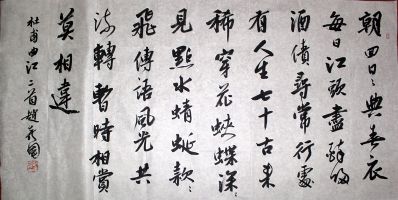 朝回日〻典春衣
每日江頭盡醉歸
酒債尋常行處
有人生七十古來
稀穿花蛺蝶深〻
見點水蜻蜓款〻
飛傳語風光共
流轉暫時相賞
莫相違
杜甫曲江二首趙